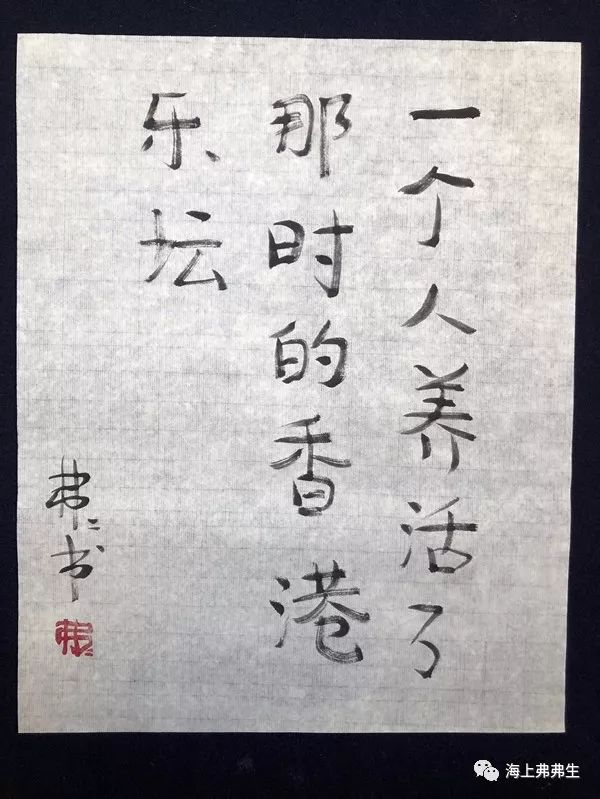 一个人养活了
那时的香港
乐坛
弗弗书
海上弗弗生